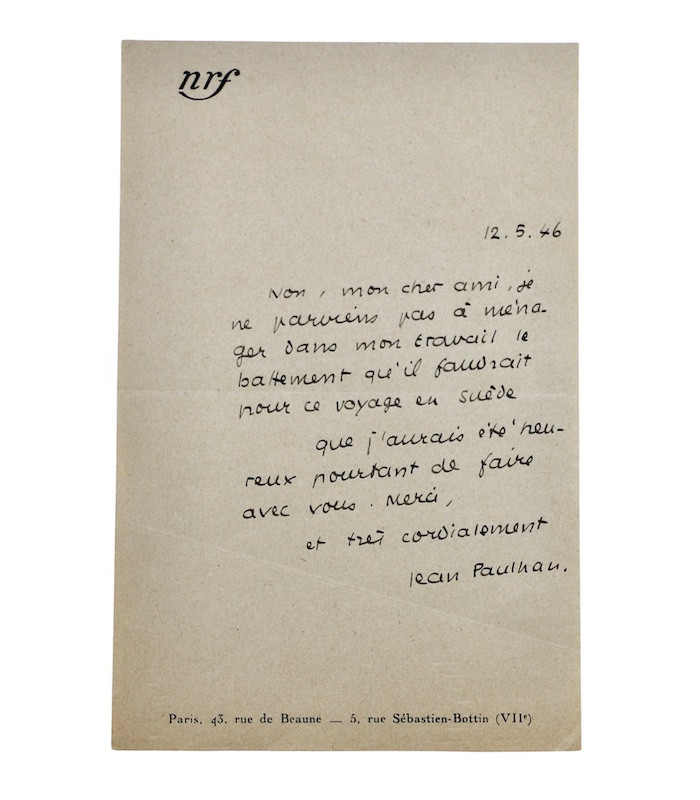 nrf
12.5.46
Non, mon cher ami, je
ne parviens pas à ména-
ger dans mon travail le
battement qu'il faudrait
pour ce voyage en Suède
que j'aurais été heu-
reux pourtant de faire
avec vous. Merci,
et très cordialement
Jean Paulhan.
Paris, 43, rue de Beaune — 5, rue Sébastien-Bottin (VIIe)